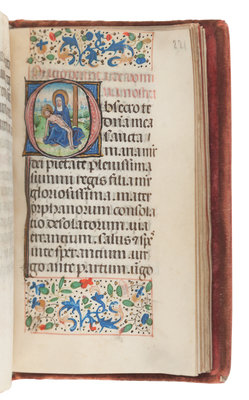 221
O
bsecro te
dn̄a mea
sancta
maria m̄r
dei pietate plenissima
summi regis filia m̄r
gloriosissima. mater
orphanorum consola
cio desolatorum. via
errancium. salus et spes
in te sperancium. uir
go ante partum. uirgo